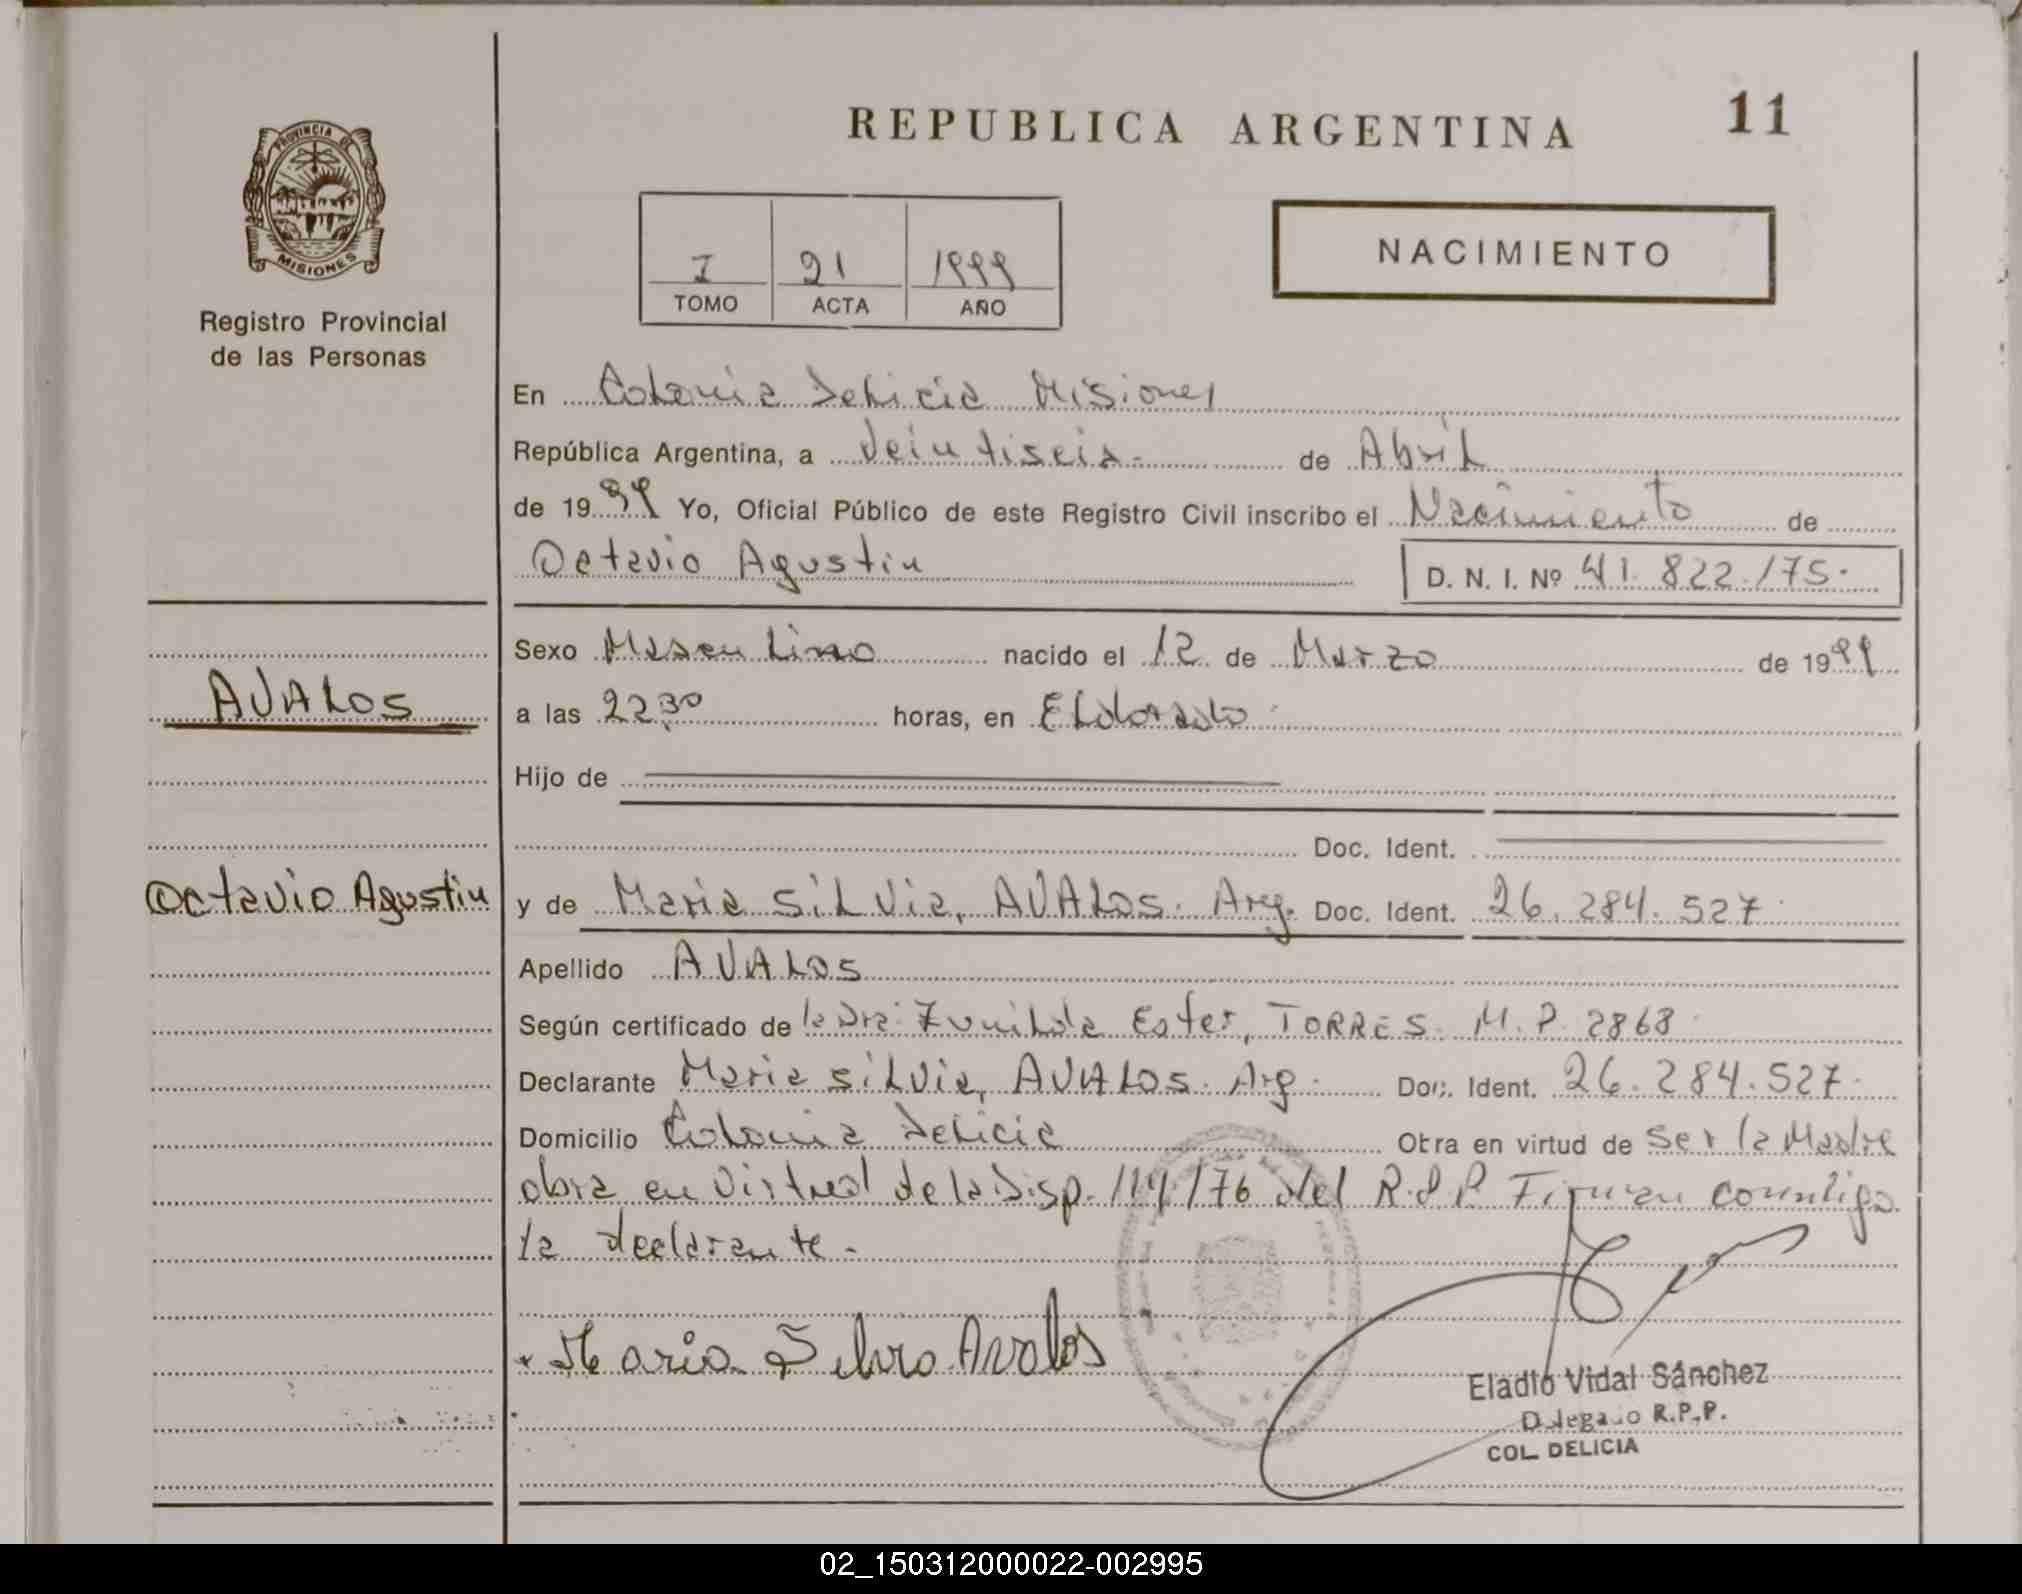 REPUBLICA ARGENTINA
11
PROVINCIA DE
MISIONES
Registro Provincial
de las Personas
I 21 1999
TOMO ACTA AÑO
NACIMIENTO
En Colonia Delicia Misiones
República Argentina, a Veintiseis- de Abril
de 1999 Yo, Oficial Público de este Registro Civil inscribo el Nacimiento de
Octavio Agustin D. N. I. Nº 41.822.175.
Sexo Masculino nacido el 12 de Marzo de 1999
AVALOS
a las 22,30 horas, en Eldorado
Hijo de
Doc. Ident.
Octavio Agustin
y de Maria Silvia, AVALOS. Arg. Doc. Ident. 26.284.527
Apellido AVALOS
Según certificado de la Dra. Zunilda Ester, TORRES. M.P. 2868
Declarante Maria Silvia, AVALOS. Arg. Doc. Ident. 26.284.527.
Domicilio Colonia Delicia Obra en virtud de ser la Madre
obra en virtud de la Disp. 114/76 del R.P.P. Firman conmigo
la declarante.-
Maria Silvia Avalos
Eladio Vidal Sánchez
Delegado R.P.P.
COL. DELICIA
02_150312000022-002995